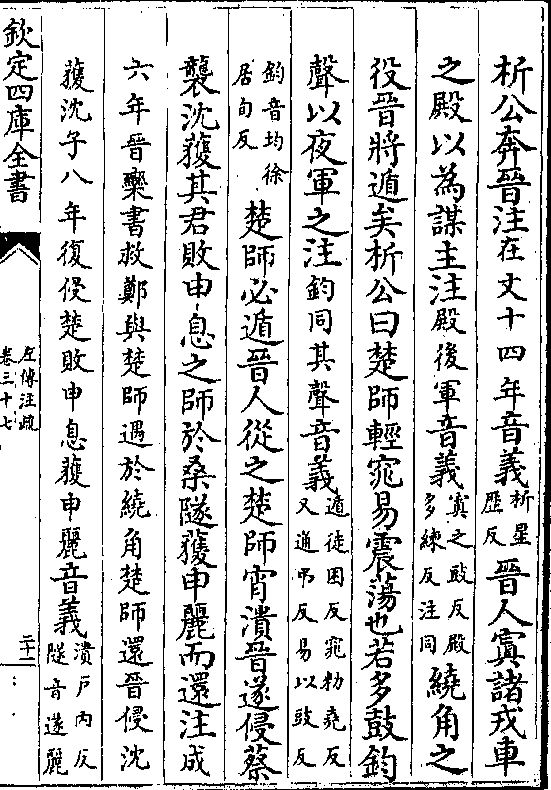 析公奔晉注在文十四年音義析星歷反晉人寘諸戎車
之殿以為謀主注殿後軍音義寘之豉反殿多練反注同繞角之
役晉將遁矣析公曰楚師輕窕易震蕩也若多鼓鈞
聲以夜軍之注鈞同其聲音義遁徒困反窕勑堯反又通弔反易以豉反
鈞音均徐居旬反楚師必遁晉人從之楚師宵潰晉遂侵蔡
襲沈獲其君敗申息之師於桑隧獲申麗而還注成
六年晉欒書救鄭與楚師遇於繞角楚師還晉侵沈
獲沈子八年復侵楚敗申息獲申麗音義潰戶內反隧音遂麗
欽定四庫全書
左傳注疏
卷三十七
二十一